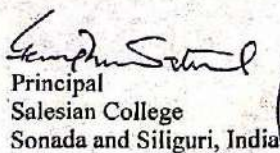 Principal
Salesian College
Sonada and Siliguri, India